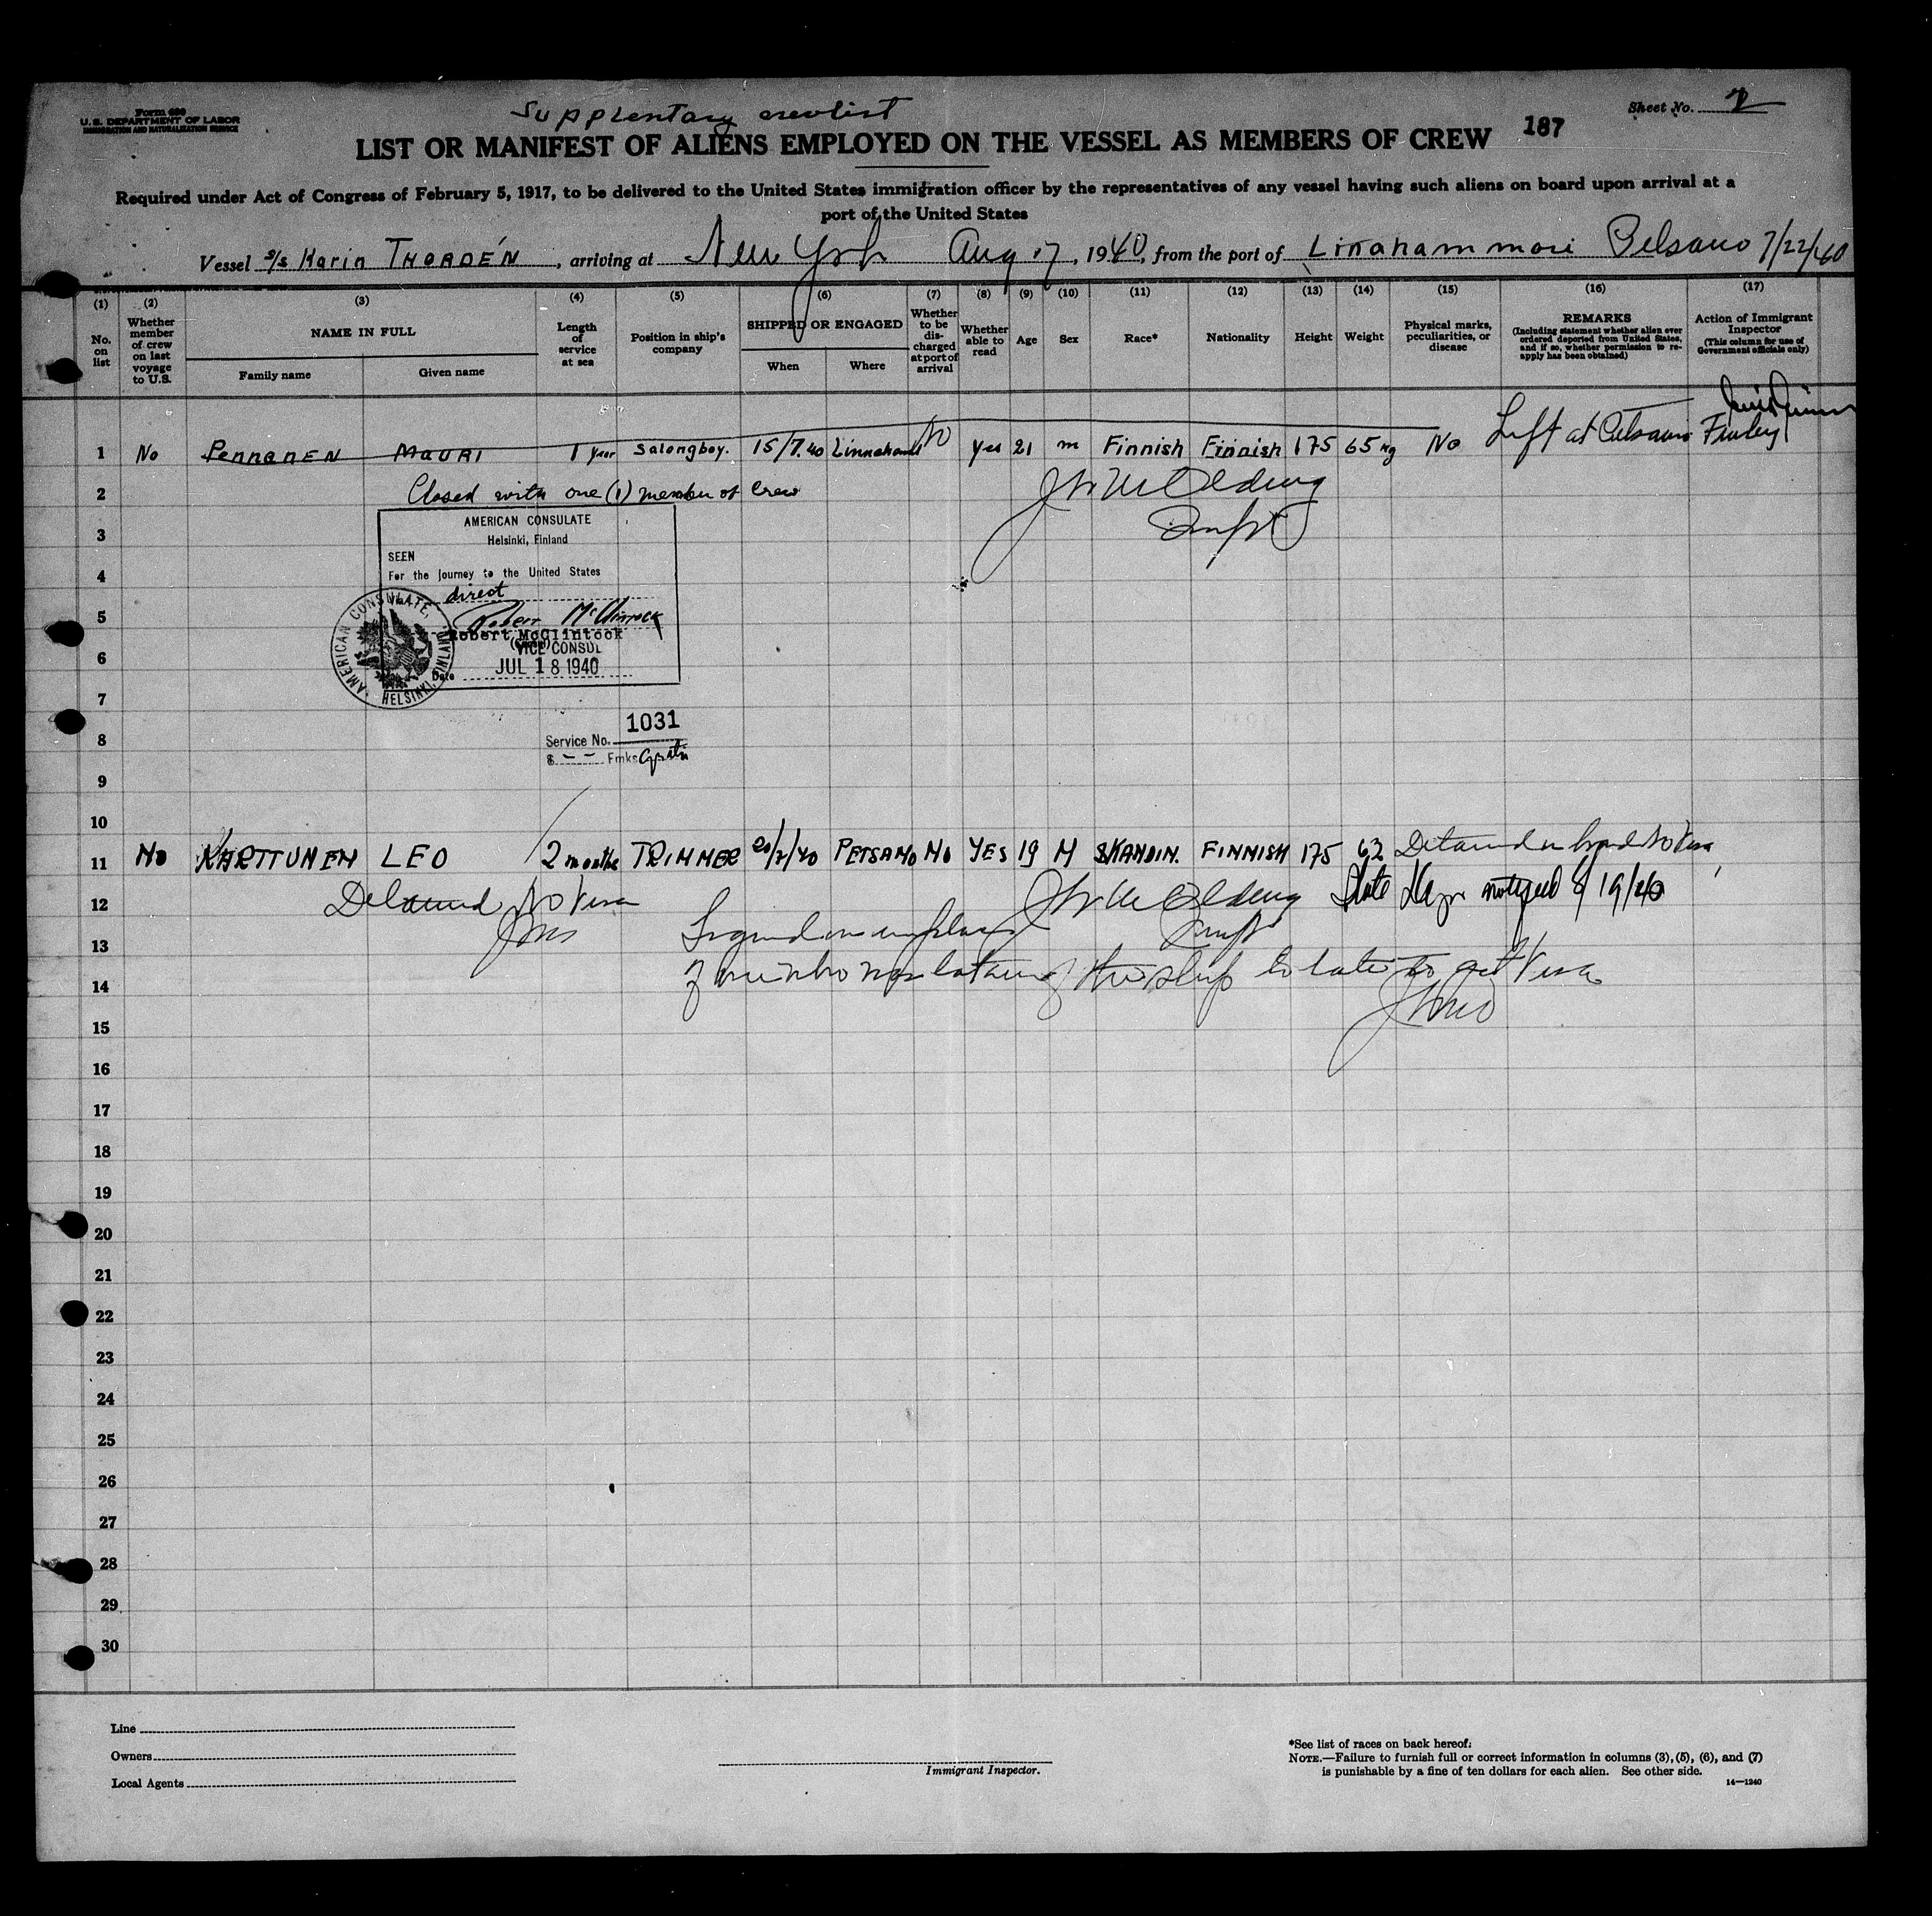 Form 680
U. S. DEPARTMENT OF LABOR
IMMIGRATION AND NATURALIZATION SERVICE
Supplentary crewlist
Sheet No. 2
LIST OR MANIFEST OF ALIENS EMPLOYED ON THE VESSEL AS MEMBERS OF CREW 187
Required under Act of Congress of February 5, 1917, to be delivered to the United States immigration officer by the representatives of any vessel having such aliens on board upon arrival at a
port of the United States
Vessel s/s Karin THORDÉN, arriving at New York Aug 17, 1940, from the port of Linahammari Petsamo 7/22/40
(1) (2) (3) (4) (5) (6) (7) (8) (9) (10) (11) (12) (13) (14) (15) (16) (17)
No. on list
Whether member of crew on last voyage to U.S.
NAME IN FULL
Family name
Given name
Length of service at sea
Position in ship's company
SHIPPED OR ENGAGED
When
Where
Whether to be discharged at port of arrival
Whether able to read
Age
Sex
Race*
Nationality
Height
Weight
Physical marks, peculiarities, or disease
REMARKS
(Including statement whether alien ever ordered deported from United States, and if so, whether permission to reapply has been obtained)
Action of Immigrant Inspector
(This column for use of Government officials only)
1 No PENNANEN MAURI 1 year Salongboy. 15/7.40 Linnaham No Yes 21 m Finnish Finnish 175 65 kg No Left at Petsamo Finland
2 Closed with one (1) member of Crew
3
AMERICAN CONSULATE
Helsinki, Finland
SEEN
For the Journey to the United States
4
direct
5
Robert McClintock
Robert McClintock
VICE CONSUL
6
Date JUL 18 1940
AMERICAN CONSULATE, HELSINKI, FINLAND
7
Service No. 1031
8
$ -- Fmks Gratis
9
10
11 No KARTTUNEN LEO 2 months TRIMMER 20/7/40 PETSAMO No YES 19 M SKANDIN. FINNISH 175 62 Detained on board No Visa
12 Detained No Visa State Dept notified 8/19/40
13 Signed on in place
14 of man who was taken off the ship to late to get Visa
15
16
17
18
19
20
21
22
23
24
25
26
27
28
29
30
Line
Owners
Local Agents
Immigrant Inspector.
*See list of races on back hereof.
NOTE.—Failure to furnish full or correct information in columns (3), (5), (6), and (7)
is punishable by a fine of ten dollars for each alien. See other side.
14—1240